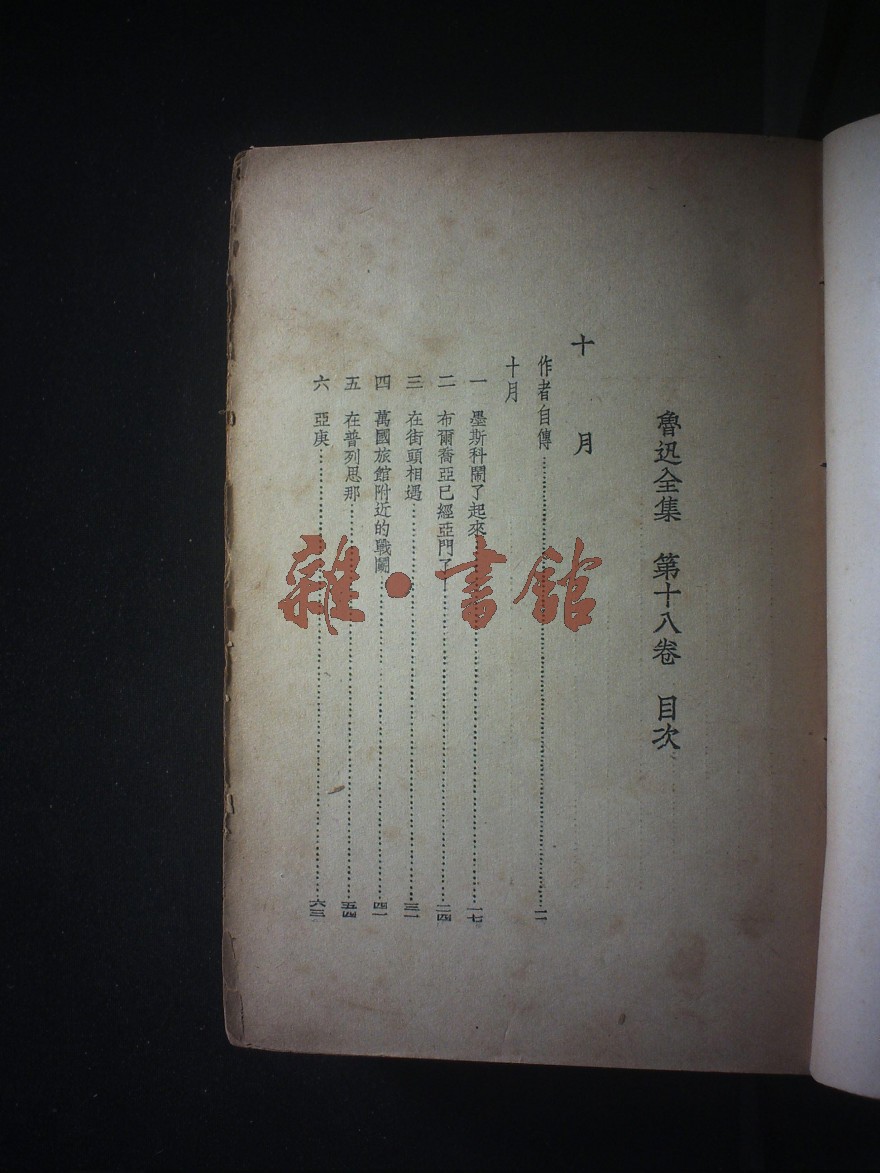 魯迅全集　第十八卷　目次
十月
作者自傳……一一
十月
一　墨斯科鬧了起來……一七
二　布爾喬亞已經亞門了……二四
三　在街頭相遇……三一
四　萬國旅館附近的戰鬭……四一
五　在普列思那……五四
六　亞庚……六三
雜·書館